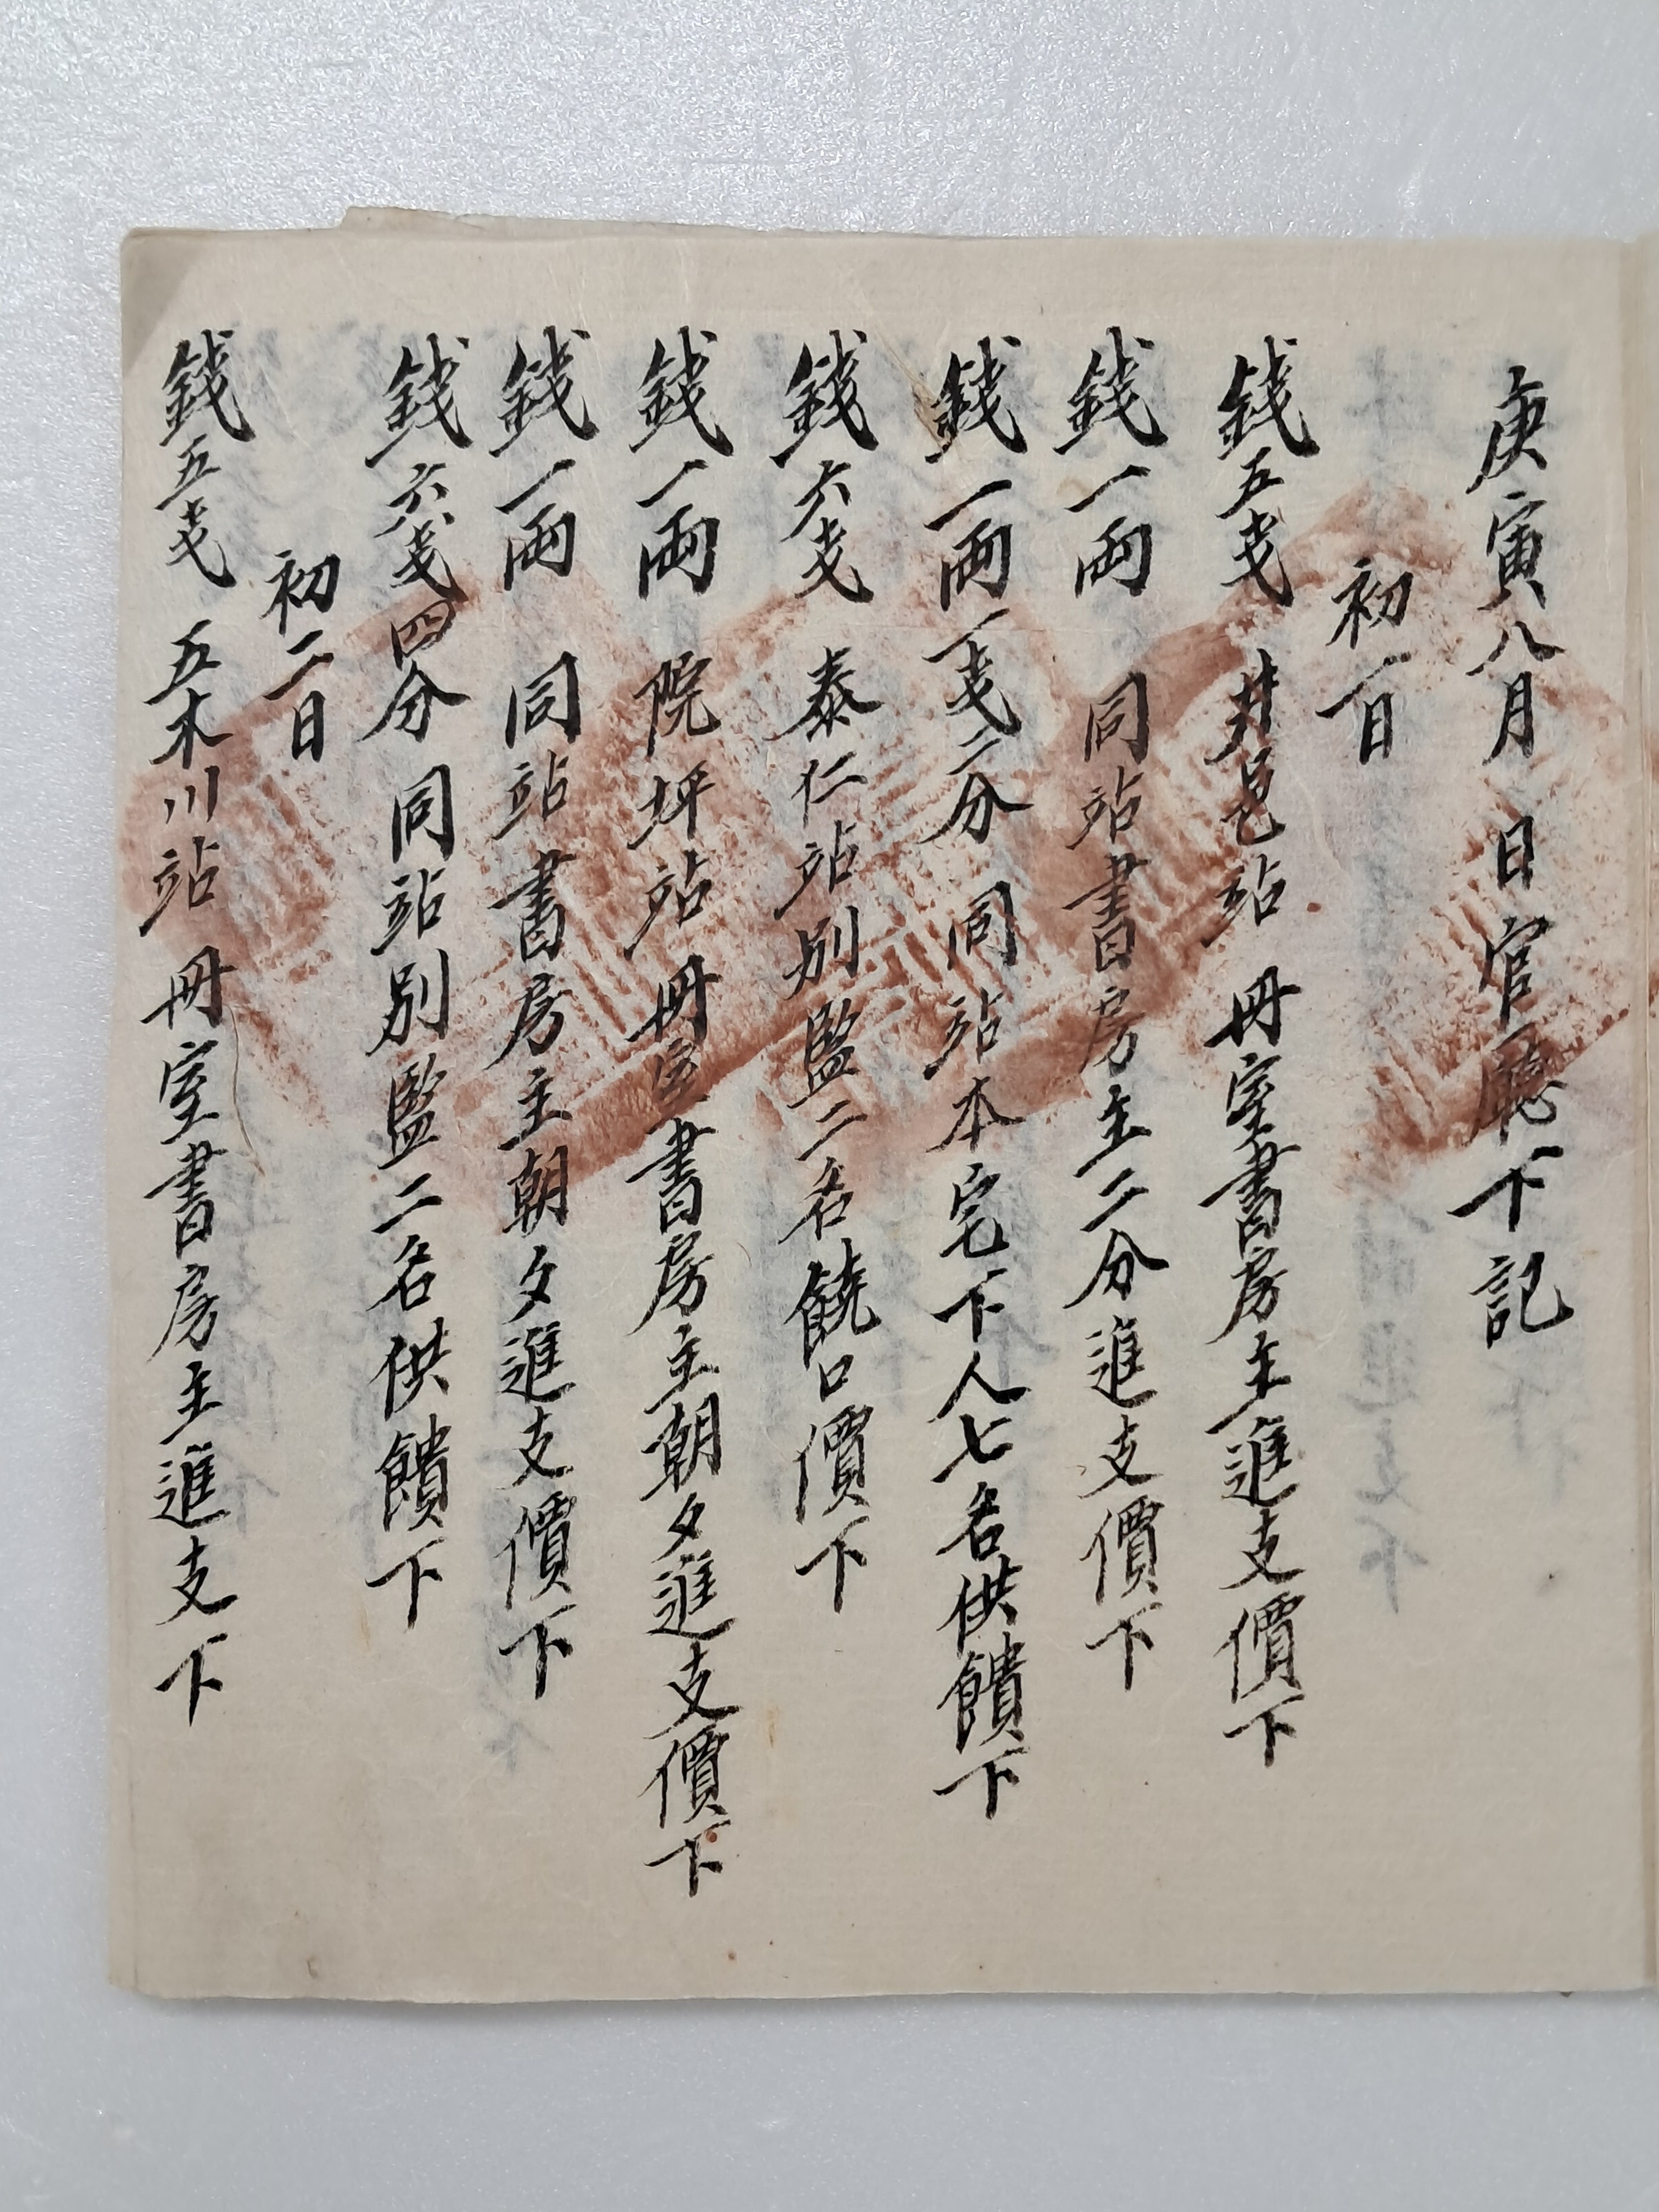 庚寅八月 日官廳下記
初一日
錢五戔 井邑站 冊室書房主進支價下
錢一兩 同站書房主二分進支價下
錢一兩一戔二分 同站本宅下人七名供饋下
錢六戔 泰仁站別監二名饒口價下
錢一兩 院坪站 冊室書房主朝夕進支價下
錢一兩 同站書房主朝夕進支價下
錢六戔四分 同站別監二名供饋下
初二日
錢五戔 五木川站 冊室書房主進支下